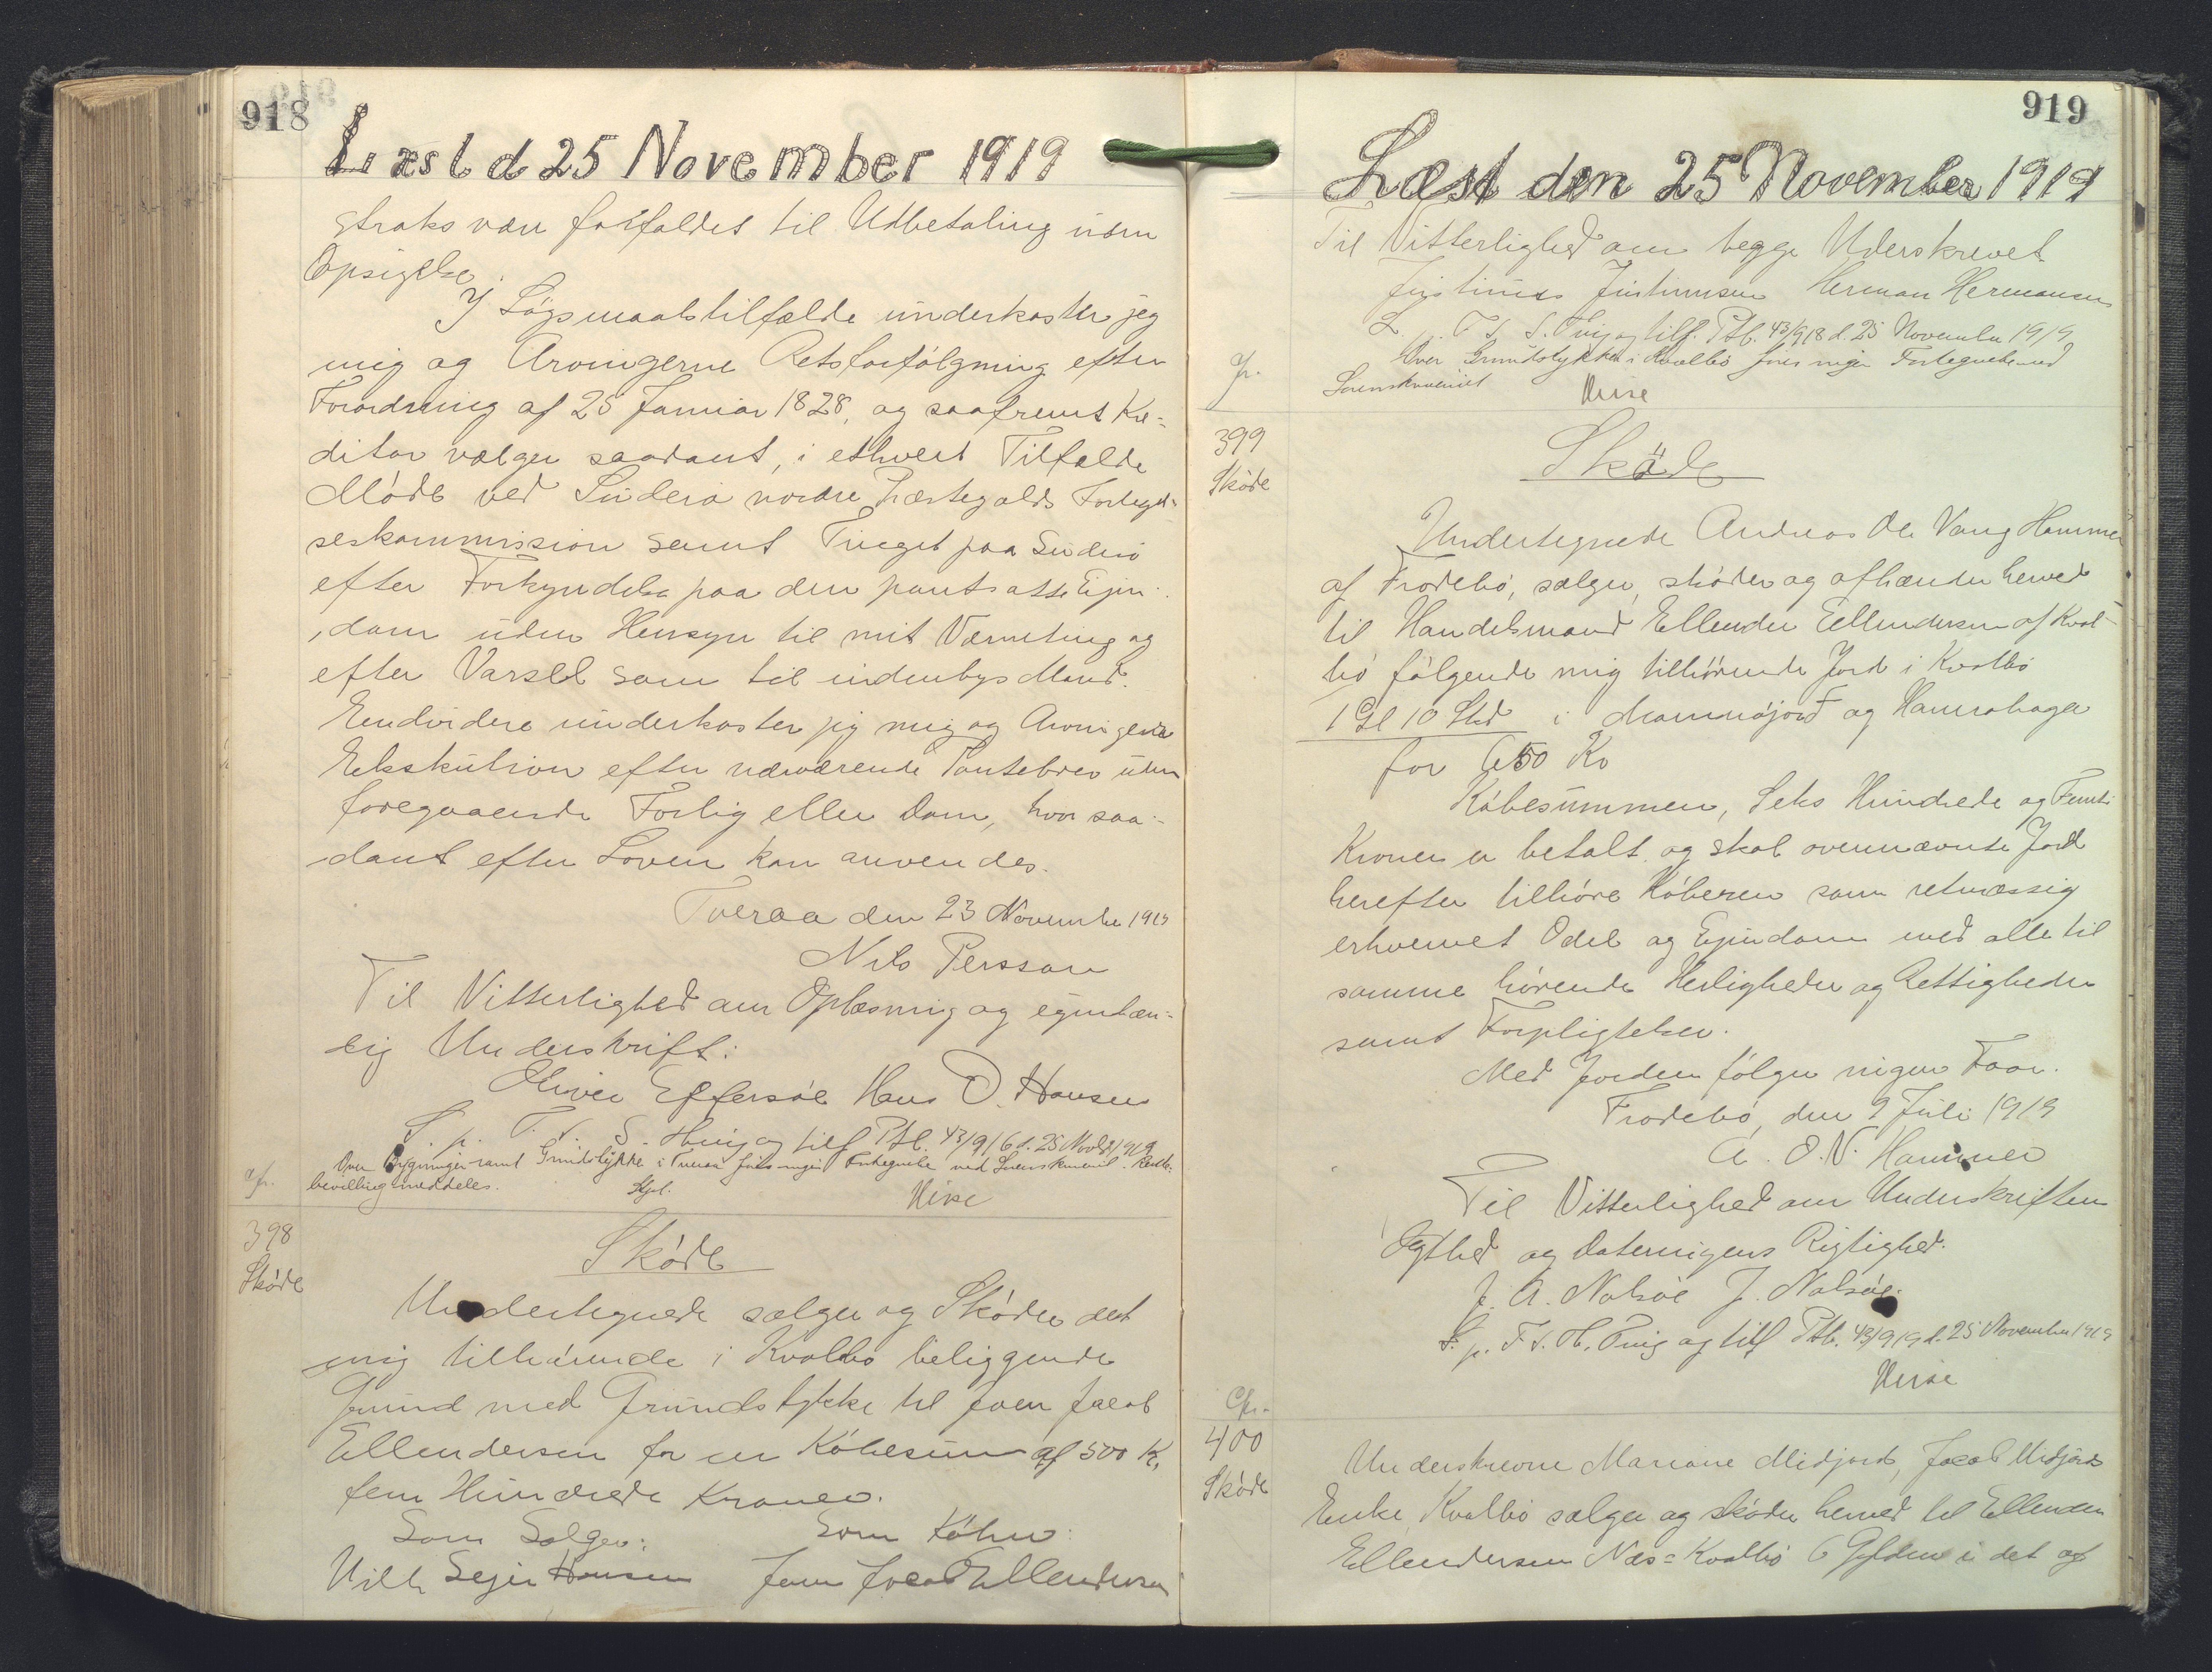 918
Læst d 25 November 1919
straks være forfaldet til Udbetaling uden
Opsigelse.
I Søgsmaalstilfælde underkaster jeg
mig og Arvingerne Retsforfølgning efter
Forordning af 25 Januar 1828, og saafremt Kre-
ditor vælger saadant, i ethvert Tilfælde
Møde ved Suderø nordre Præstegælds Forligel-
seskommission samt Tinget paa Suderø
efter Forkyndelse paa den pantsatte Ejen-
dom uden Hensyn til mit Værneting og
efter Varsel som til indenbys Mand.
Endvidere underkaster jeg mig og Arvingerne
Eksekution efter nærværende Pantebrev uden
foregaaende Forlig eller Dom, hvor saa-
dant efter Loven kan anvendes.
Tveraa den 23 November 1919
Nils Persson
Til Vitterlighed om Oplæsning og egenhæn-
dig Underskrift:
Oliver Effersøe Hans D. Hansen
L. p. T. f. S. Thing og tilf Ptb. 43/916 d. 25 Novbr 1919
Over Bygninger samt Grundstykke i Tveraa føres ingen Fortegnelse ved Sorenskriveriet.
bevilling meddeles.
Cfr.
398
Skøde
Skøde
Undertegnede sælger og Skøder det
mig tilhørende i Kvalbø beliggende
Grund med Grundstykke til Joen Jacob
Ellendersen for en Købesum af 500 Kr.
fem Hundrede Kroner.
Som Sælger: Som Køber:
Vilh Sejer Hansen Joen Jocob Ellendersen
919
Læst den 25 November 1919
Til Vitterlighed om begge Uderskrevet
Justinus Justinussen Herman Hermansen
L. p. T. f. S. Ting og tilf. Ptb. 43/918 d. 25 November 1919
Over Grundstykker i Kvalbø føres ingen Fortegnelse ved
Sorenskriveriet
Cfr.
399
Skøde
Skøde
Undertegnede Andreas Ole Vang Hammer
af Frodebø, sælger, skøder og afhænder herved
til Handelsmand Ellender Ellendersen af Kval-
bø følgende mig tilhørende Jord i Kvalbø
1 Gl 10 Skd i og Hamrahage
for 650 Kr
Købesummen, Seks Hundrede og Femti
Kroner er betalt og skal ovennævnte Jord
herefter tilhøre Køberen som retmæssig
erhvervet Odel og Ejendom med alle til
samme hørende Herligheder og Rettigheder
samt Forpligtelser.
Med Jorden følger ingen Faar.
Frodebø, den 9 Juli 1919
A. O. V. Hammer
Til Vitterlighed om Underskriftens
Ægthed og Dateringens Rigtighed.
J. A. Nolsøe J. Nolsøe.
L. p. T. f. S. Ting og tilf Ptb. 43/919 d. 25 November 1919
Cfr.
400
Skøde
Underskrevne Mariane Midjord, Jacob Midjords
Enke, Kvalbø sælger og skøder herved til Ellender
Ellendersen Næs=Kvalbø 6 Gylden i det af